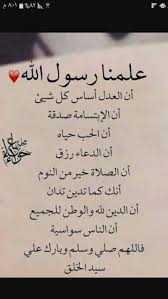 ٨:٠١ م
٨٢%
علمنا رسول الله
أن العدل أساس كل شيئ
أن الإبتسامة صدقة
أن الحب حياه
أن الدعاء رزق
أن الصلاة خير من النوم
أنك كما تدين تدان
أن الدين لله والوطن للجميع
أن الناس سواسية
فاللهم صلي وسلم وبارك علي
سيد الخلق